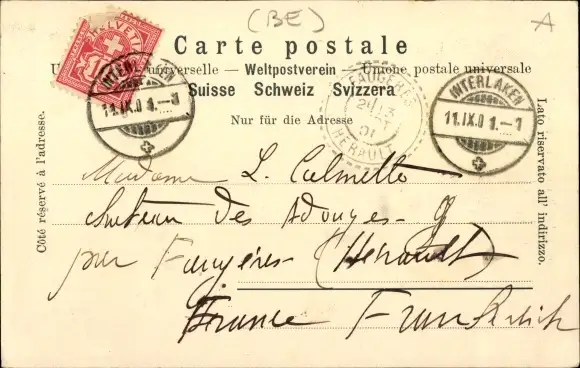 (BE)
A
Carte postale
Union postale universelle — Weltpostverein — Unione postale universale
Suisse Schweiz Svizzera
Nur für die Adresse
Côté réservé à l'adresse.
Lato riservato all' indirizzo.
HELVETIA
10
INTERLAKEN
11.IX.01.-1
FAUGÈRES
HERAULT
INTERLAKEN
11.IX.01.-1
Madame L. Calmette
Château des Adouzes-
par Faugères (Hérault)
France Frankreich